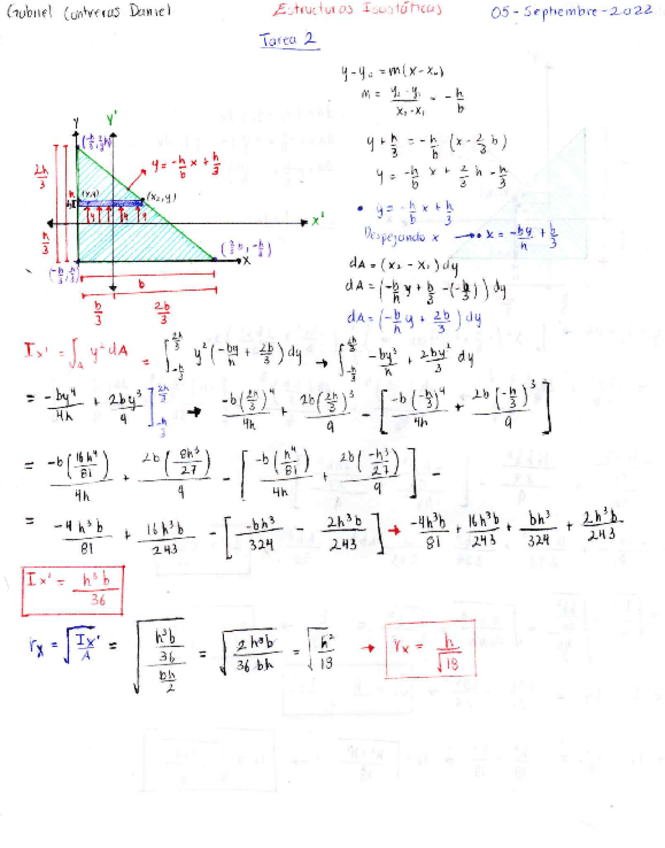 Gabriel Contreras Daniel Estructuras Isostáticas 05-Septiembre-2022
Tarea 2
y-y₀ = m(x-x₀)
m = (y₂-y₁)/(x₂-x₁) = -h/b
y + h/3 = -h/b (x - 2/3 b)
y = -h/b x + 2/3 h - h/3
• y = -h/b x + h/3
Despejando x → • x = -by/h + b/3
dA = (x₂ - x₁) dy
dA = (-b/h y + b/3 - (-b/3)) dy
dA = (-b/h y + 2b/3) dy
y y'
(-h/3, 2/3 h)
y = -h/b x + h/3
2h/3 h
(x,y) (x₂,y)
x'
h/3
(-b/3, h/3) (2/3 b, -h/3)
x
b
b/3 2b/3
Ix' = ∫A y² dA = ∫_{-h/3}^{2h/3} y² (-by/h + 2b/3) dy → ∫_{-h/3}^{2h/3} -by³/h + 2by²/3 dy
= -by⁴/4h + 2by³/9 ]_{-h/3}^{2h/3} → -b(2h/3)⁴/4h + 2b(2h/3)³/9 - [ -b(-h/3)⁴/4h + 2b(-h/3)³/9 ]
= -b(16h⁴/81)/4h + 2b(8h³/27)/9 - [ -b(h⁴/81)/4h + 2b(-h³/27)/9 ] -
= -4h³b/81 + 16h³b/243 - [ -bh³/324 - 2h³b/243 ] → -4h³b/81 + 16h³b/243 + bh³/324 + 2h³b/243
Ix' = h³b/36
rx = √(Ix'/A) = √((h³b/36)/(bh/2)) = √(2h³b/36bh) = √(h²/18) → rx = h/√18